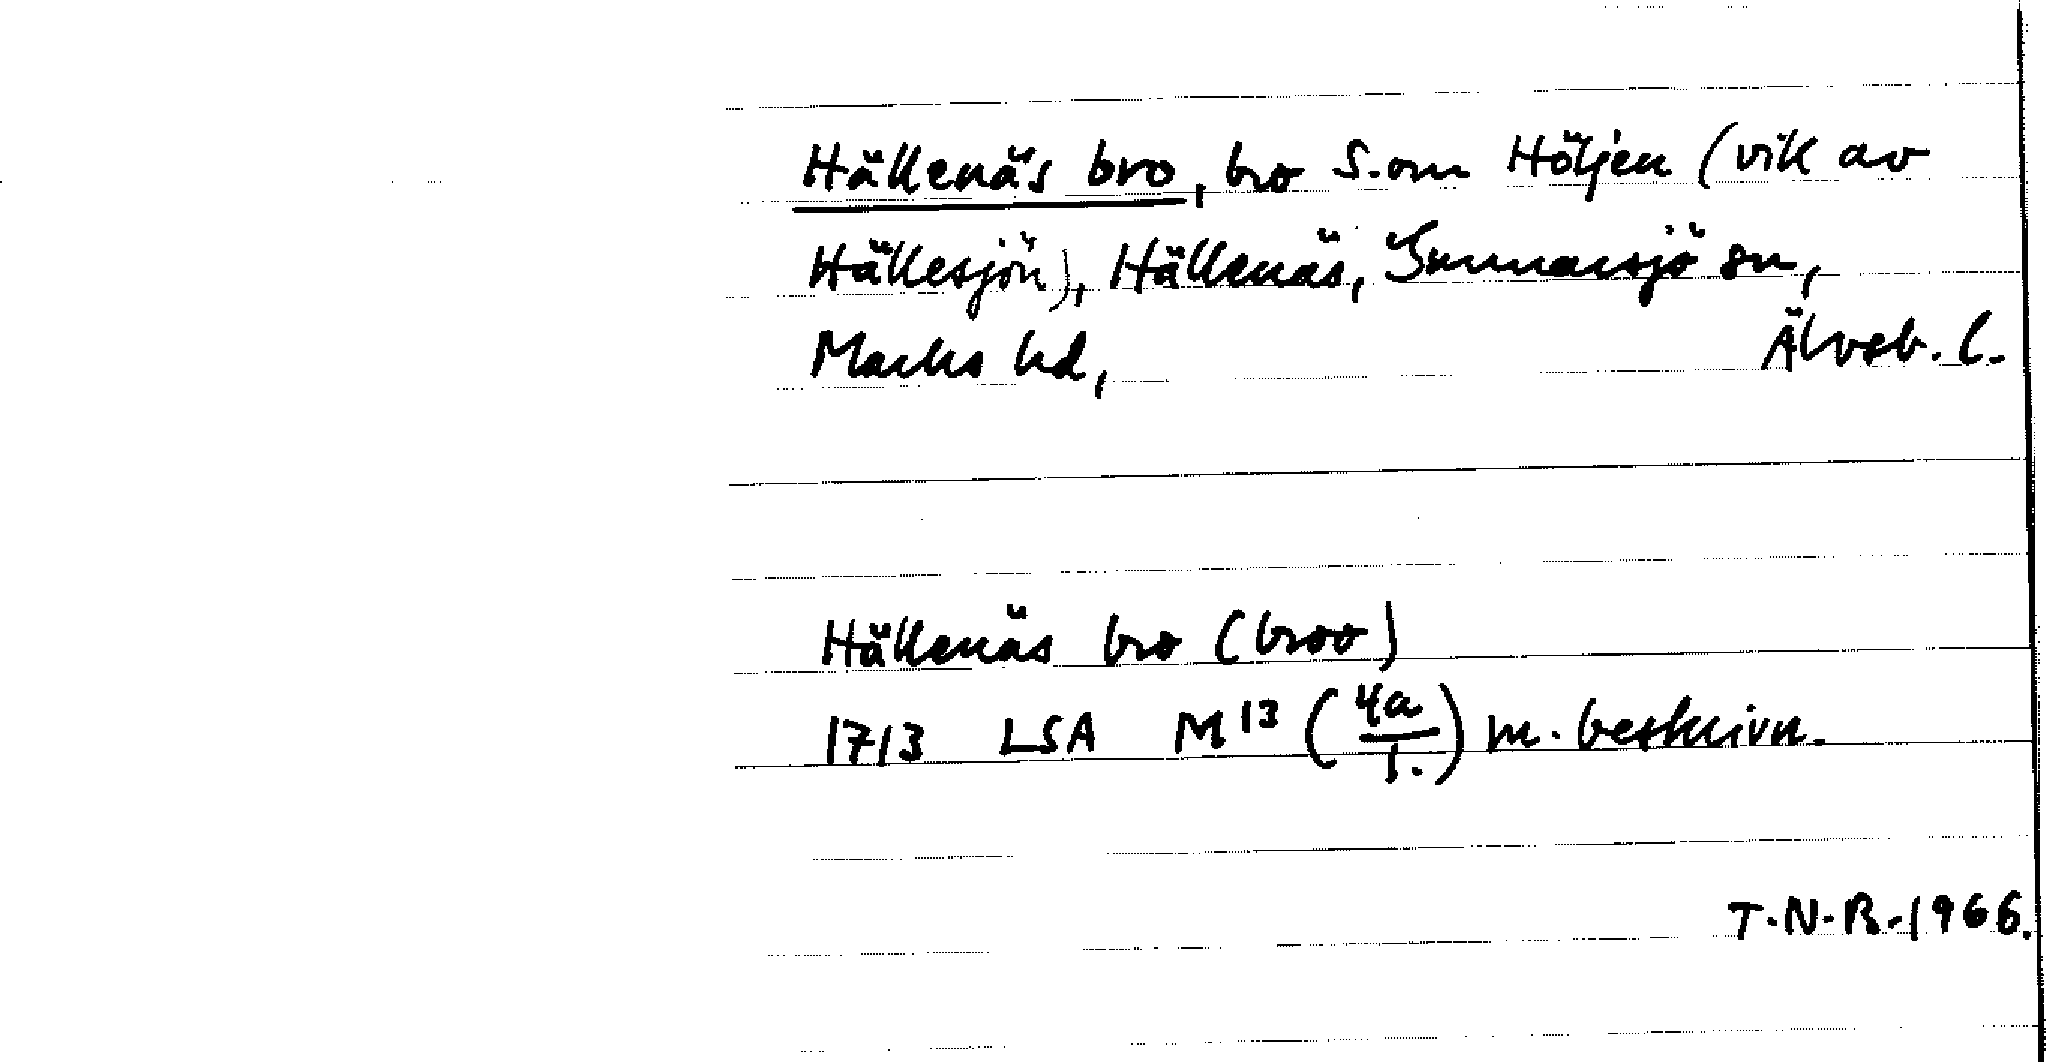 Hällenäs bro, bro S.om Höljen (vik av
Hällesjön), Hällenäs, Gunnarsjö sn,
Marks hd, Älvsb. l.
Hällenäs bro (broo)
1713 LSA M 13 (4a/1.) m. beskrivn.
T.N.R.1966.